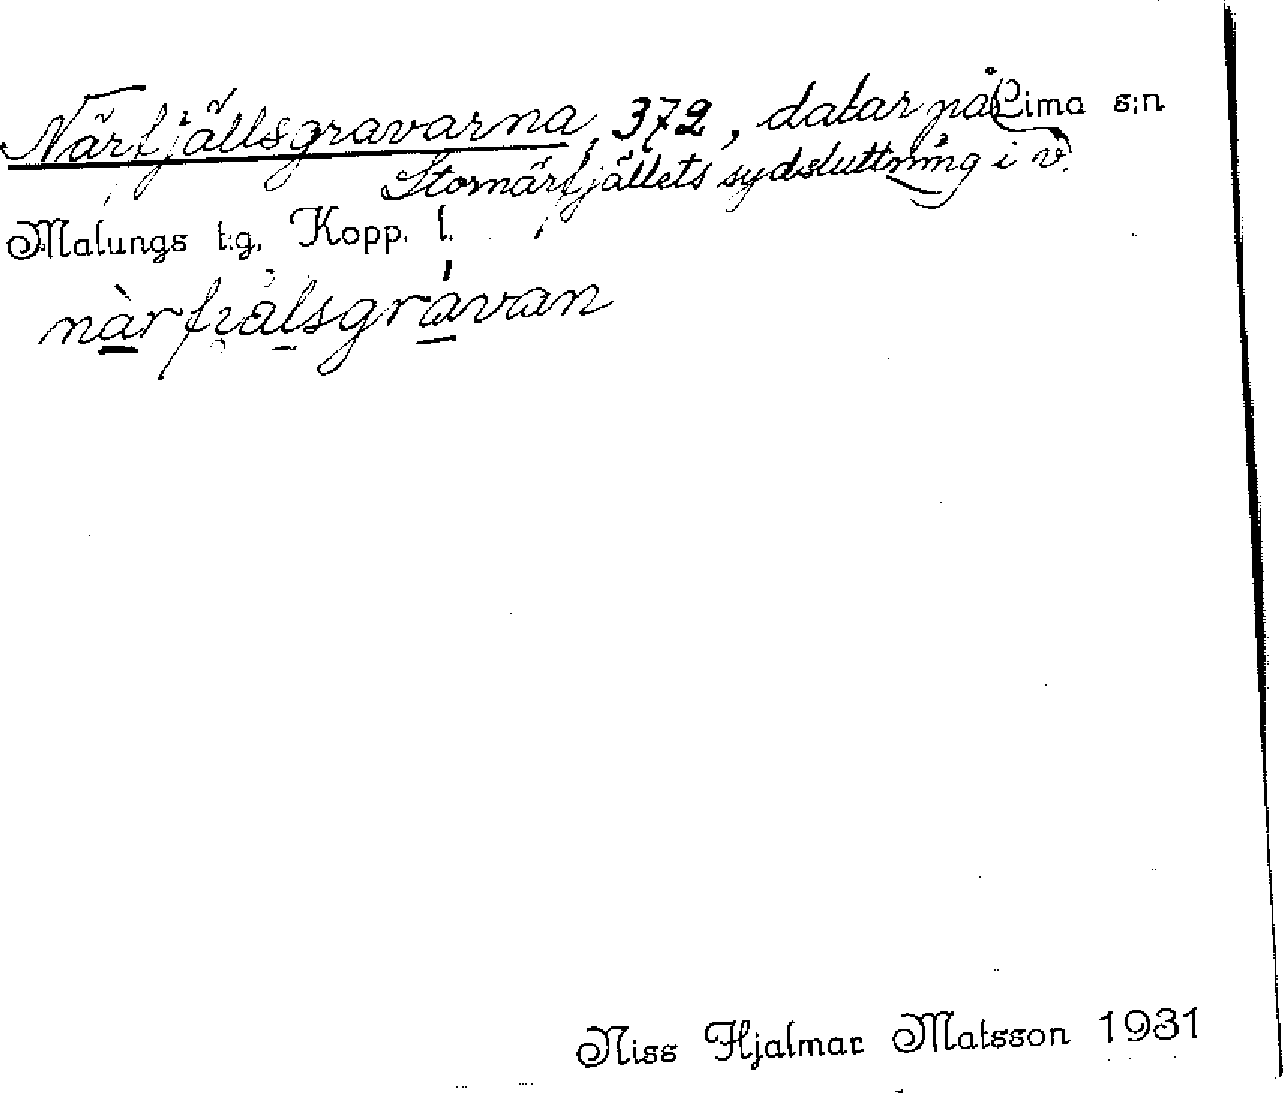 Närfjällsgravarna, 372, dalar på Lima s:n
Stornärfjällets sydsluttning i v.
Malungs t:g. Kopp. l.
nàrfjälsgrávan
Niss Hjalmar Matsson 1931